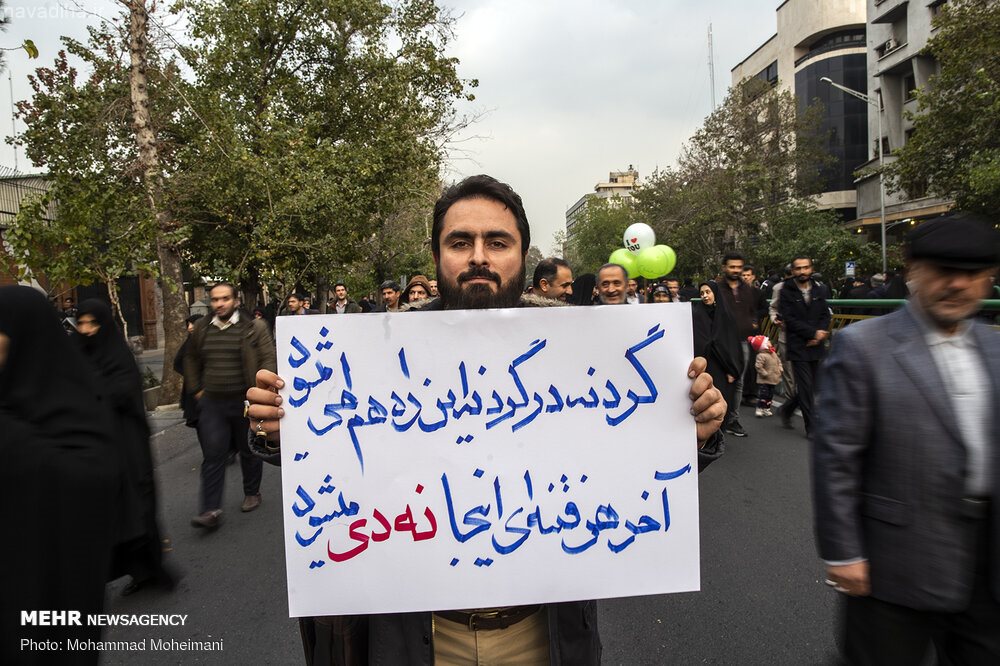 navadiha.ir
I ♥ YOU
گردنه در گردنه این راه هم طی میشود
آخر هر فتنه‌ای اینجا نه دی میشود
MEHR NEWSAGENCY
Photo: Mohammad Moheimani